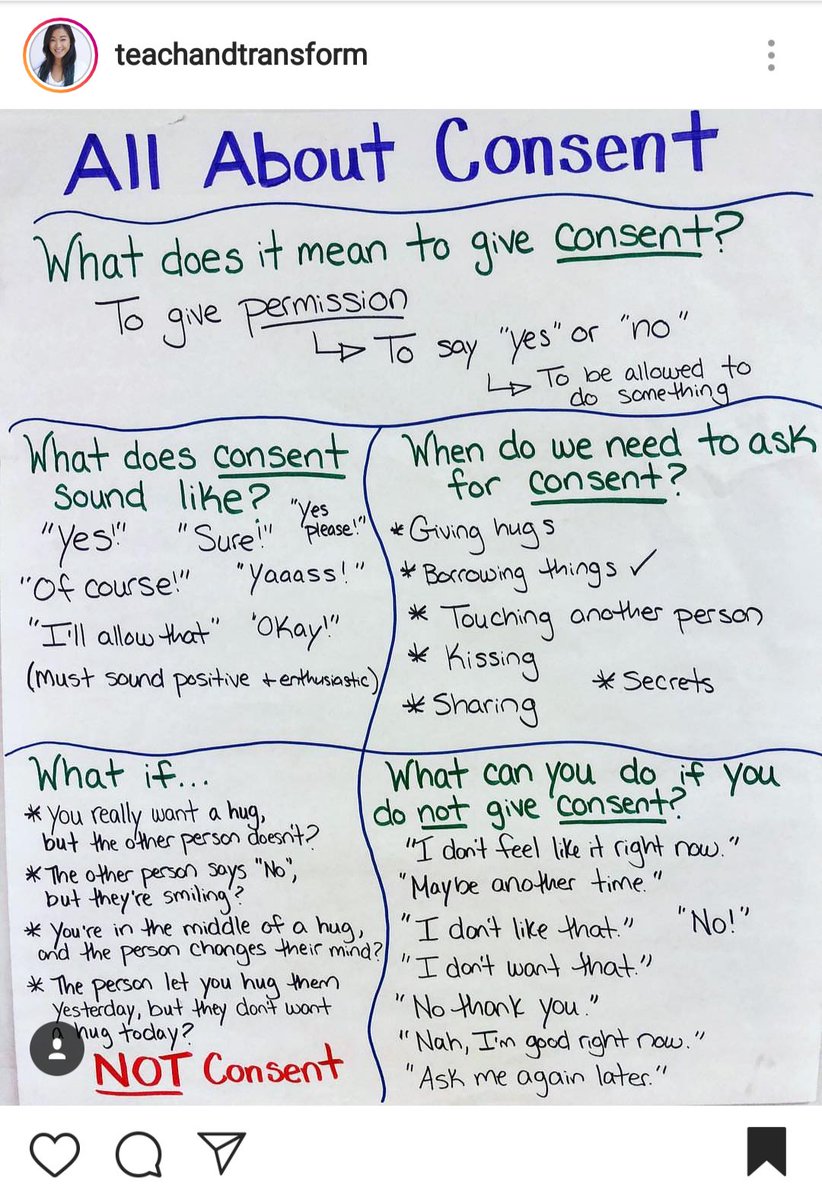 teachandtransform
All About Consent
What does it mean to give consent?
To give permission
↳ To say "yes" or "no"
↳ To be allowed to
do something
What does consent
sound like?
"Yes!" "Sure!" "Yes
please!"
"Of course!" "Yaaass!"
"I'll allow that" "Okay!"
(Must sound positive + enthusiastic)
When do we need to ask
for consent?
* Giving hugs
* Borrowing things ✓
* Touching another person
* Kissing
* Secrets
* Sharing
What if...
* You really want a hug,
but the other person doesn't?
* The other person says "No",
but they're smiling?
* You're in the middle of a hug,
and the person changes their mind?
* The person let you hug them
yesterday, but they don't want
a hug today?
NOT Consent
What can you do if you
do not give consent?
"I don't feel like it right now."
"Maybe another time."
"I don't like that." "No!"
"I don't want that."
"No thank you."
"Nah, I'm good right now."
"Ask me again later."